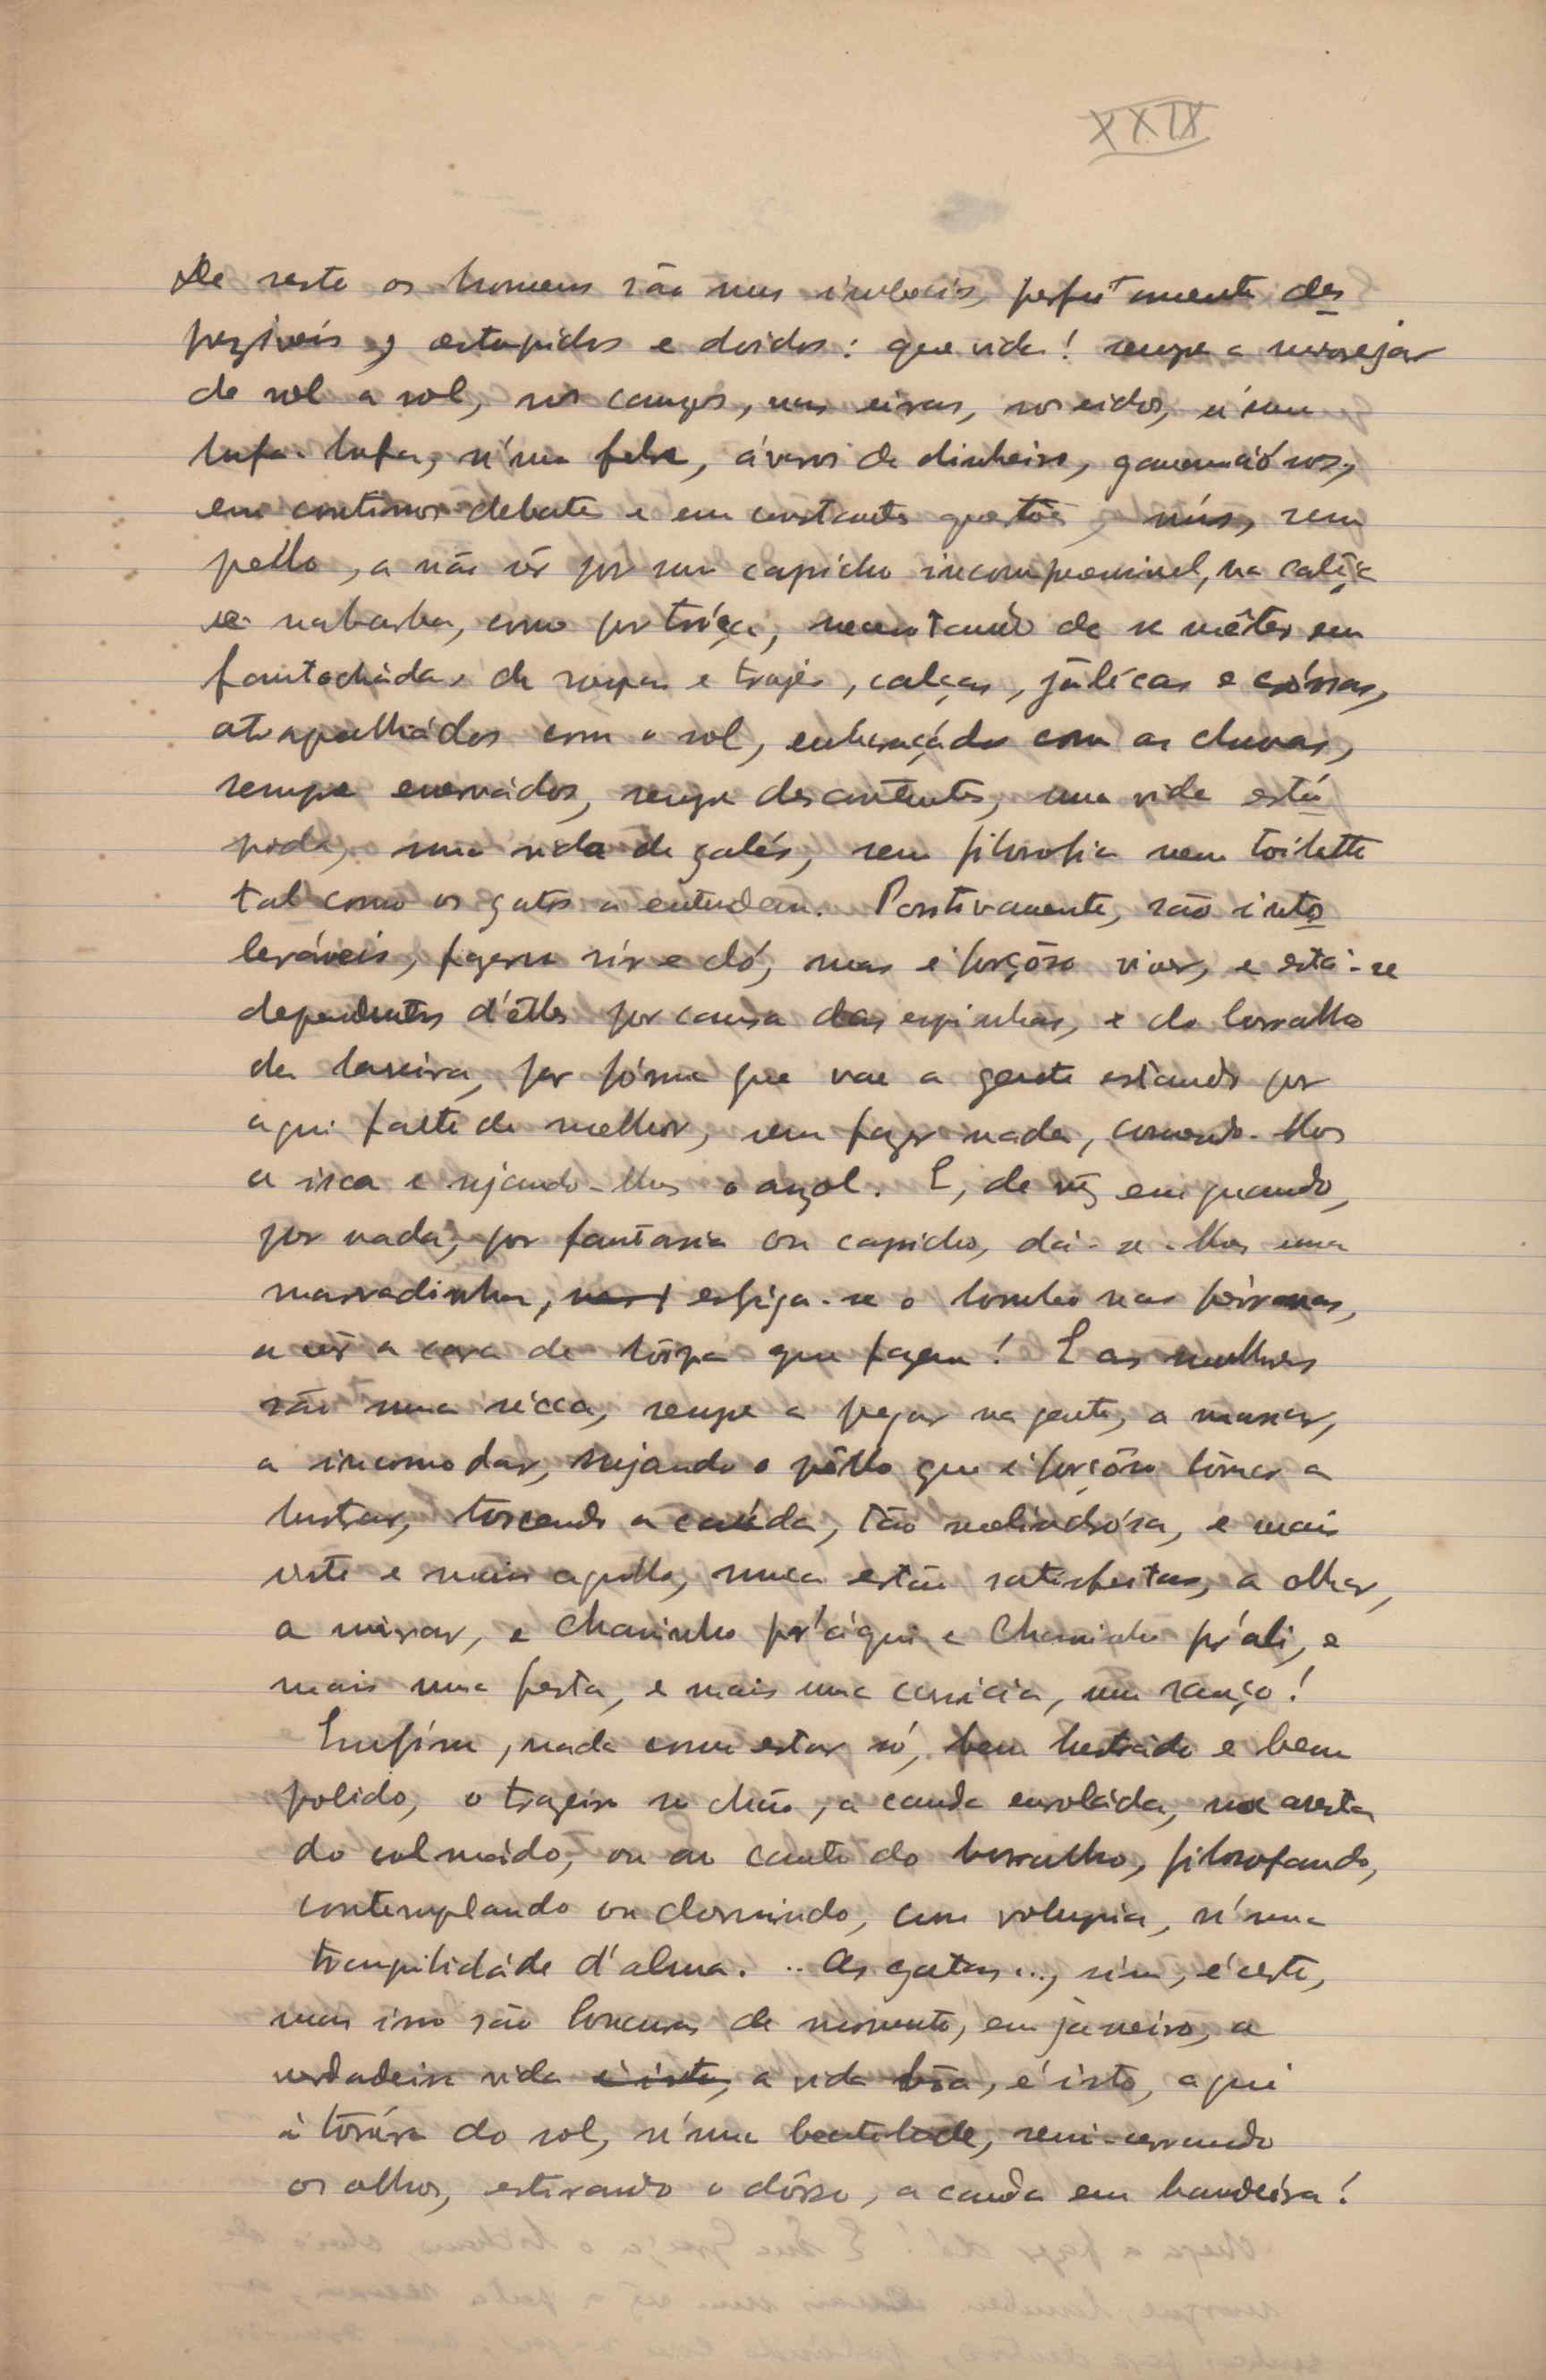 XXIX
De resto os homens são uns imbecis, perfeitamente des
preziveis, estupidos e doidos: que vida! sempre a mourejar
de sol a sol, nos campos, nas eiras, nos eidos, n'um
lufa-lufa, n'uma febre, ávaros de dinheiro, gananciósos,
em continuos debates e em constantes questões, nús, sem
pello, a não sêr por um capricho incomprensivel, na cabêça
e na barba, como por tróça, necessitando de se mêter em
fantochádas de roupas e trajes, calças, jálécas e corôssas,
atrapalhádos com o sol, embaraçádos com as chuvas,
sempre enervádos, sempre descontentes, uma vida estú
pida, uma vida de galés, sem filosofia nem toilette
tal como os gatos a entendem. Positivamente, são into
leráveis, fazem rir e dó, mas é forçôso viver, e está-se
dependentes d'êlles por causa das espinhas, e do borralho
da lareira, por fórma que vae a gente estando por
aqui falte de melhor, sem fazer nada, comendo-lhes
a isca e sujando-lhes o anzol. E, de vêz em quando,
por nada, por fantasia ou capricho, dá-se-lhes uma
marradinha, esfrega-se o lombo nas pérnas,
a vêr a cara de lôrpa que fazem! E as mulheres
são uma sécca, sempre a pegar na gente, a massar,
a incomodar, sujando o pêllo que é forçôso tornar a
lustrar, torcendo a cauda, tão melindrósa, e mais
isto e mais aquillo, nunca estão satisfeitas, a olhar,
a mirar, e Chaninho pr'áqui e Chaninho pr'áli, e
mais uma festa, e mais uma caricia, um ranço!
Emfim, nada como estar só, bem lustrádo e bem
polido, o trazeiro no chão, a cauda enroláda, na aresta
do colmádo, ou ao canto do borralho, filosofando,
contemplando ou dormindo, com volupia, n'uma
tranquilidáde d'alma... As gatas..., sim, é certo,
mas isso são loucuras de momento, em janeiro, a
verdadeira vida é isto, a vida bôa, é isto, aqui
á torreira do sol, n'uma beatitude, semi-cerrando
os olhos, estirando o dôrso, a cauda em bandeira!